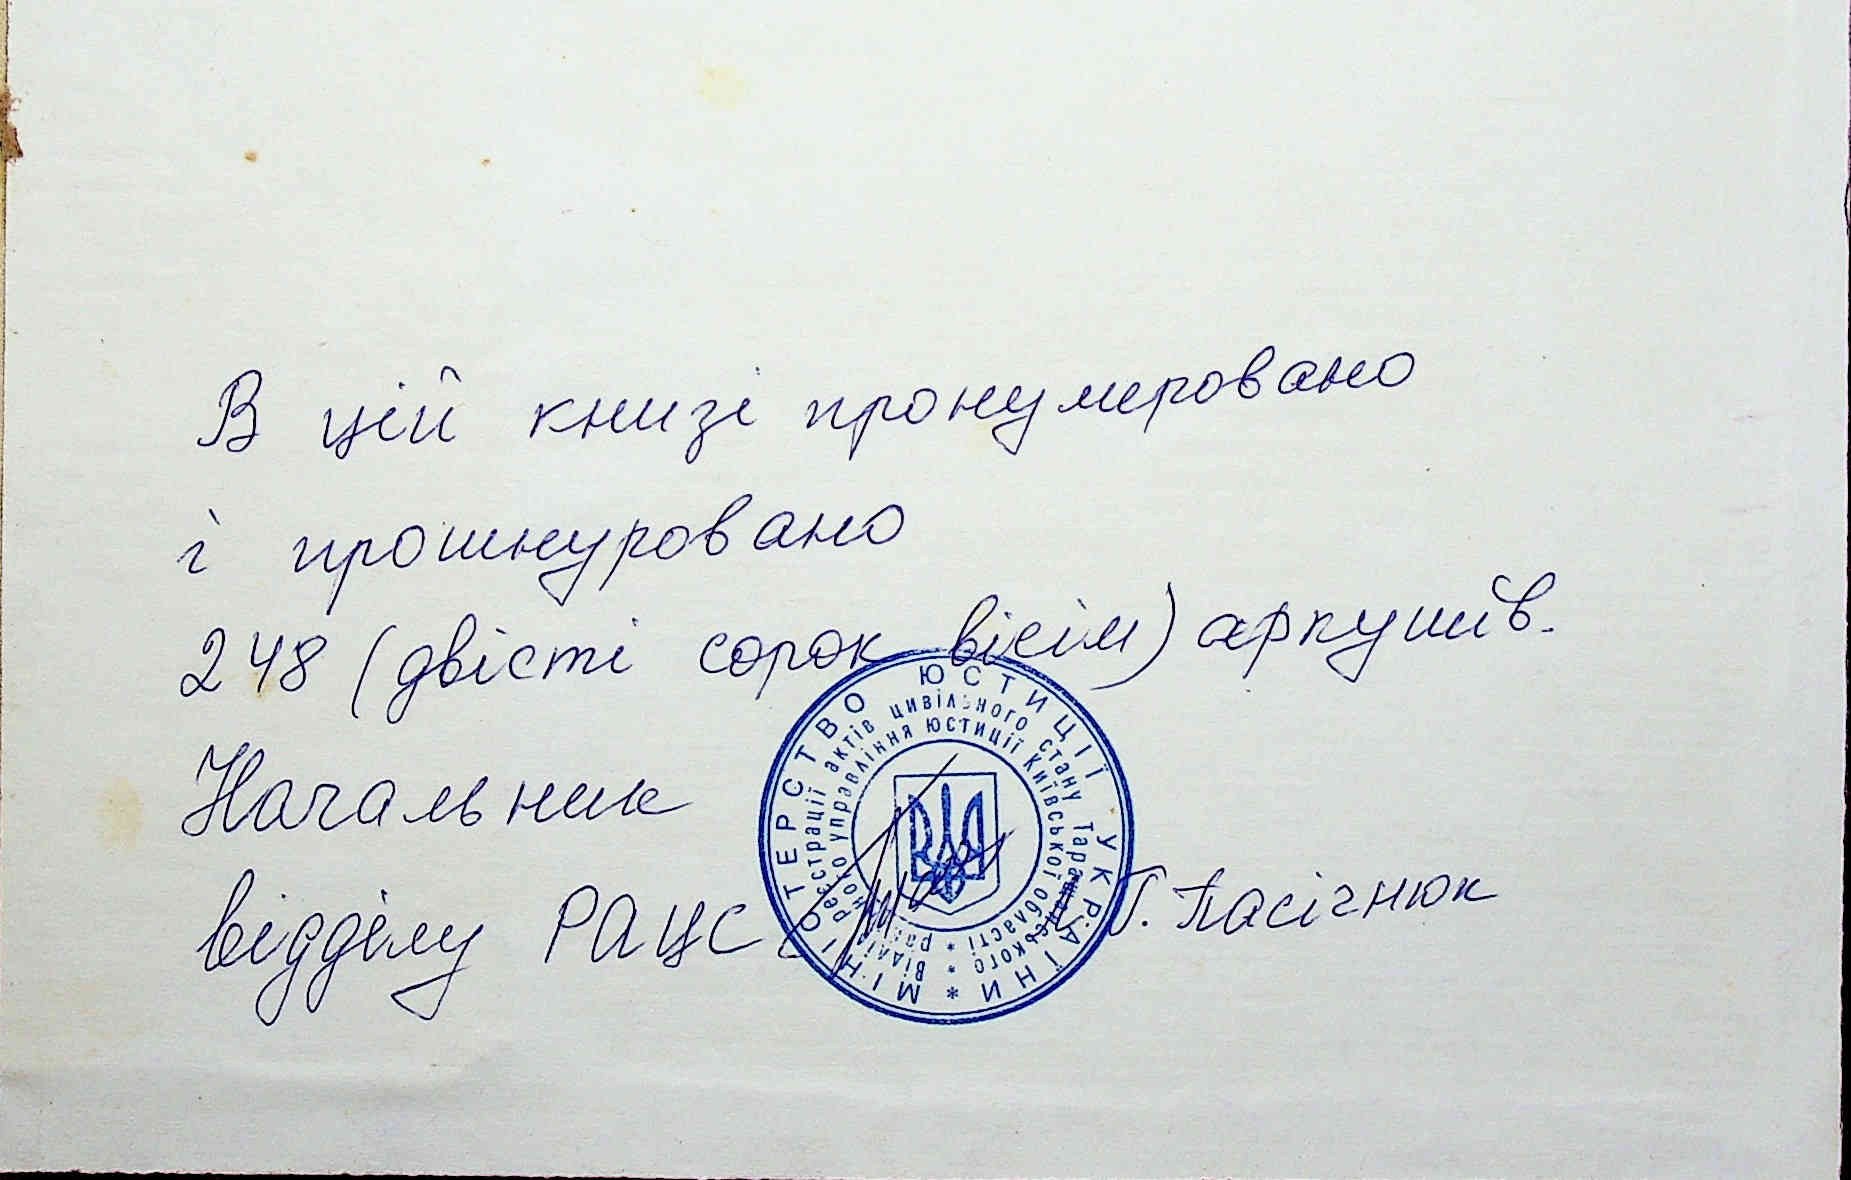 В цій книзі пронумеровано
і прошнуровано
248 (двісті сорок вісім) аркушів.
Начальник
відділу РАЦС Г. Пасічнюк
МІНІСТЕРСТВО ЮСТИЦІЇ УКРАЇНИ *
Відділ реєстрації актів цивільного стану Таращанського *
районного управління юстиції Київської області *